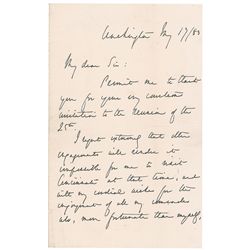 Washington My 17/83
My dear Sir:
Permit me to thank
you for your very courteous
invitation to the Reunion of the
25th.
I regret extremely that other
engagements will render it
impossible for me to visit
Cincinnati at that time, and
with my cordial wishes for the
enjoyment of all my comrades
also, more fortunate than myself,